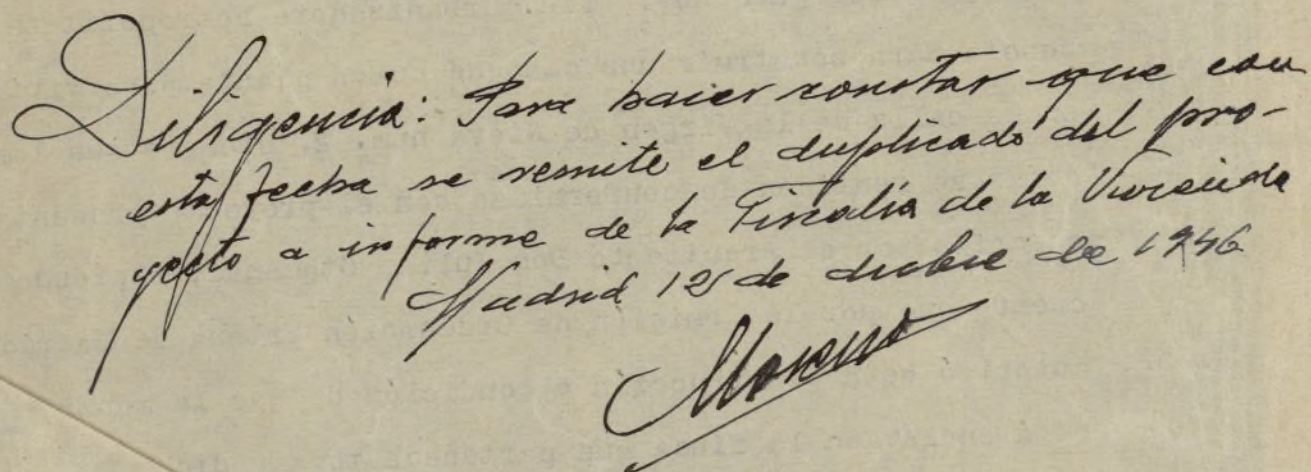 Diligencia: Para hacer constar que con
esta fecha se remite el duplicado del pro-
yecto a informe de la Fiscalía de la Vivienda
Madrid 12 de dicbre de 1946
Moreno